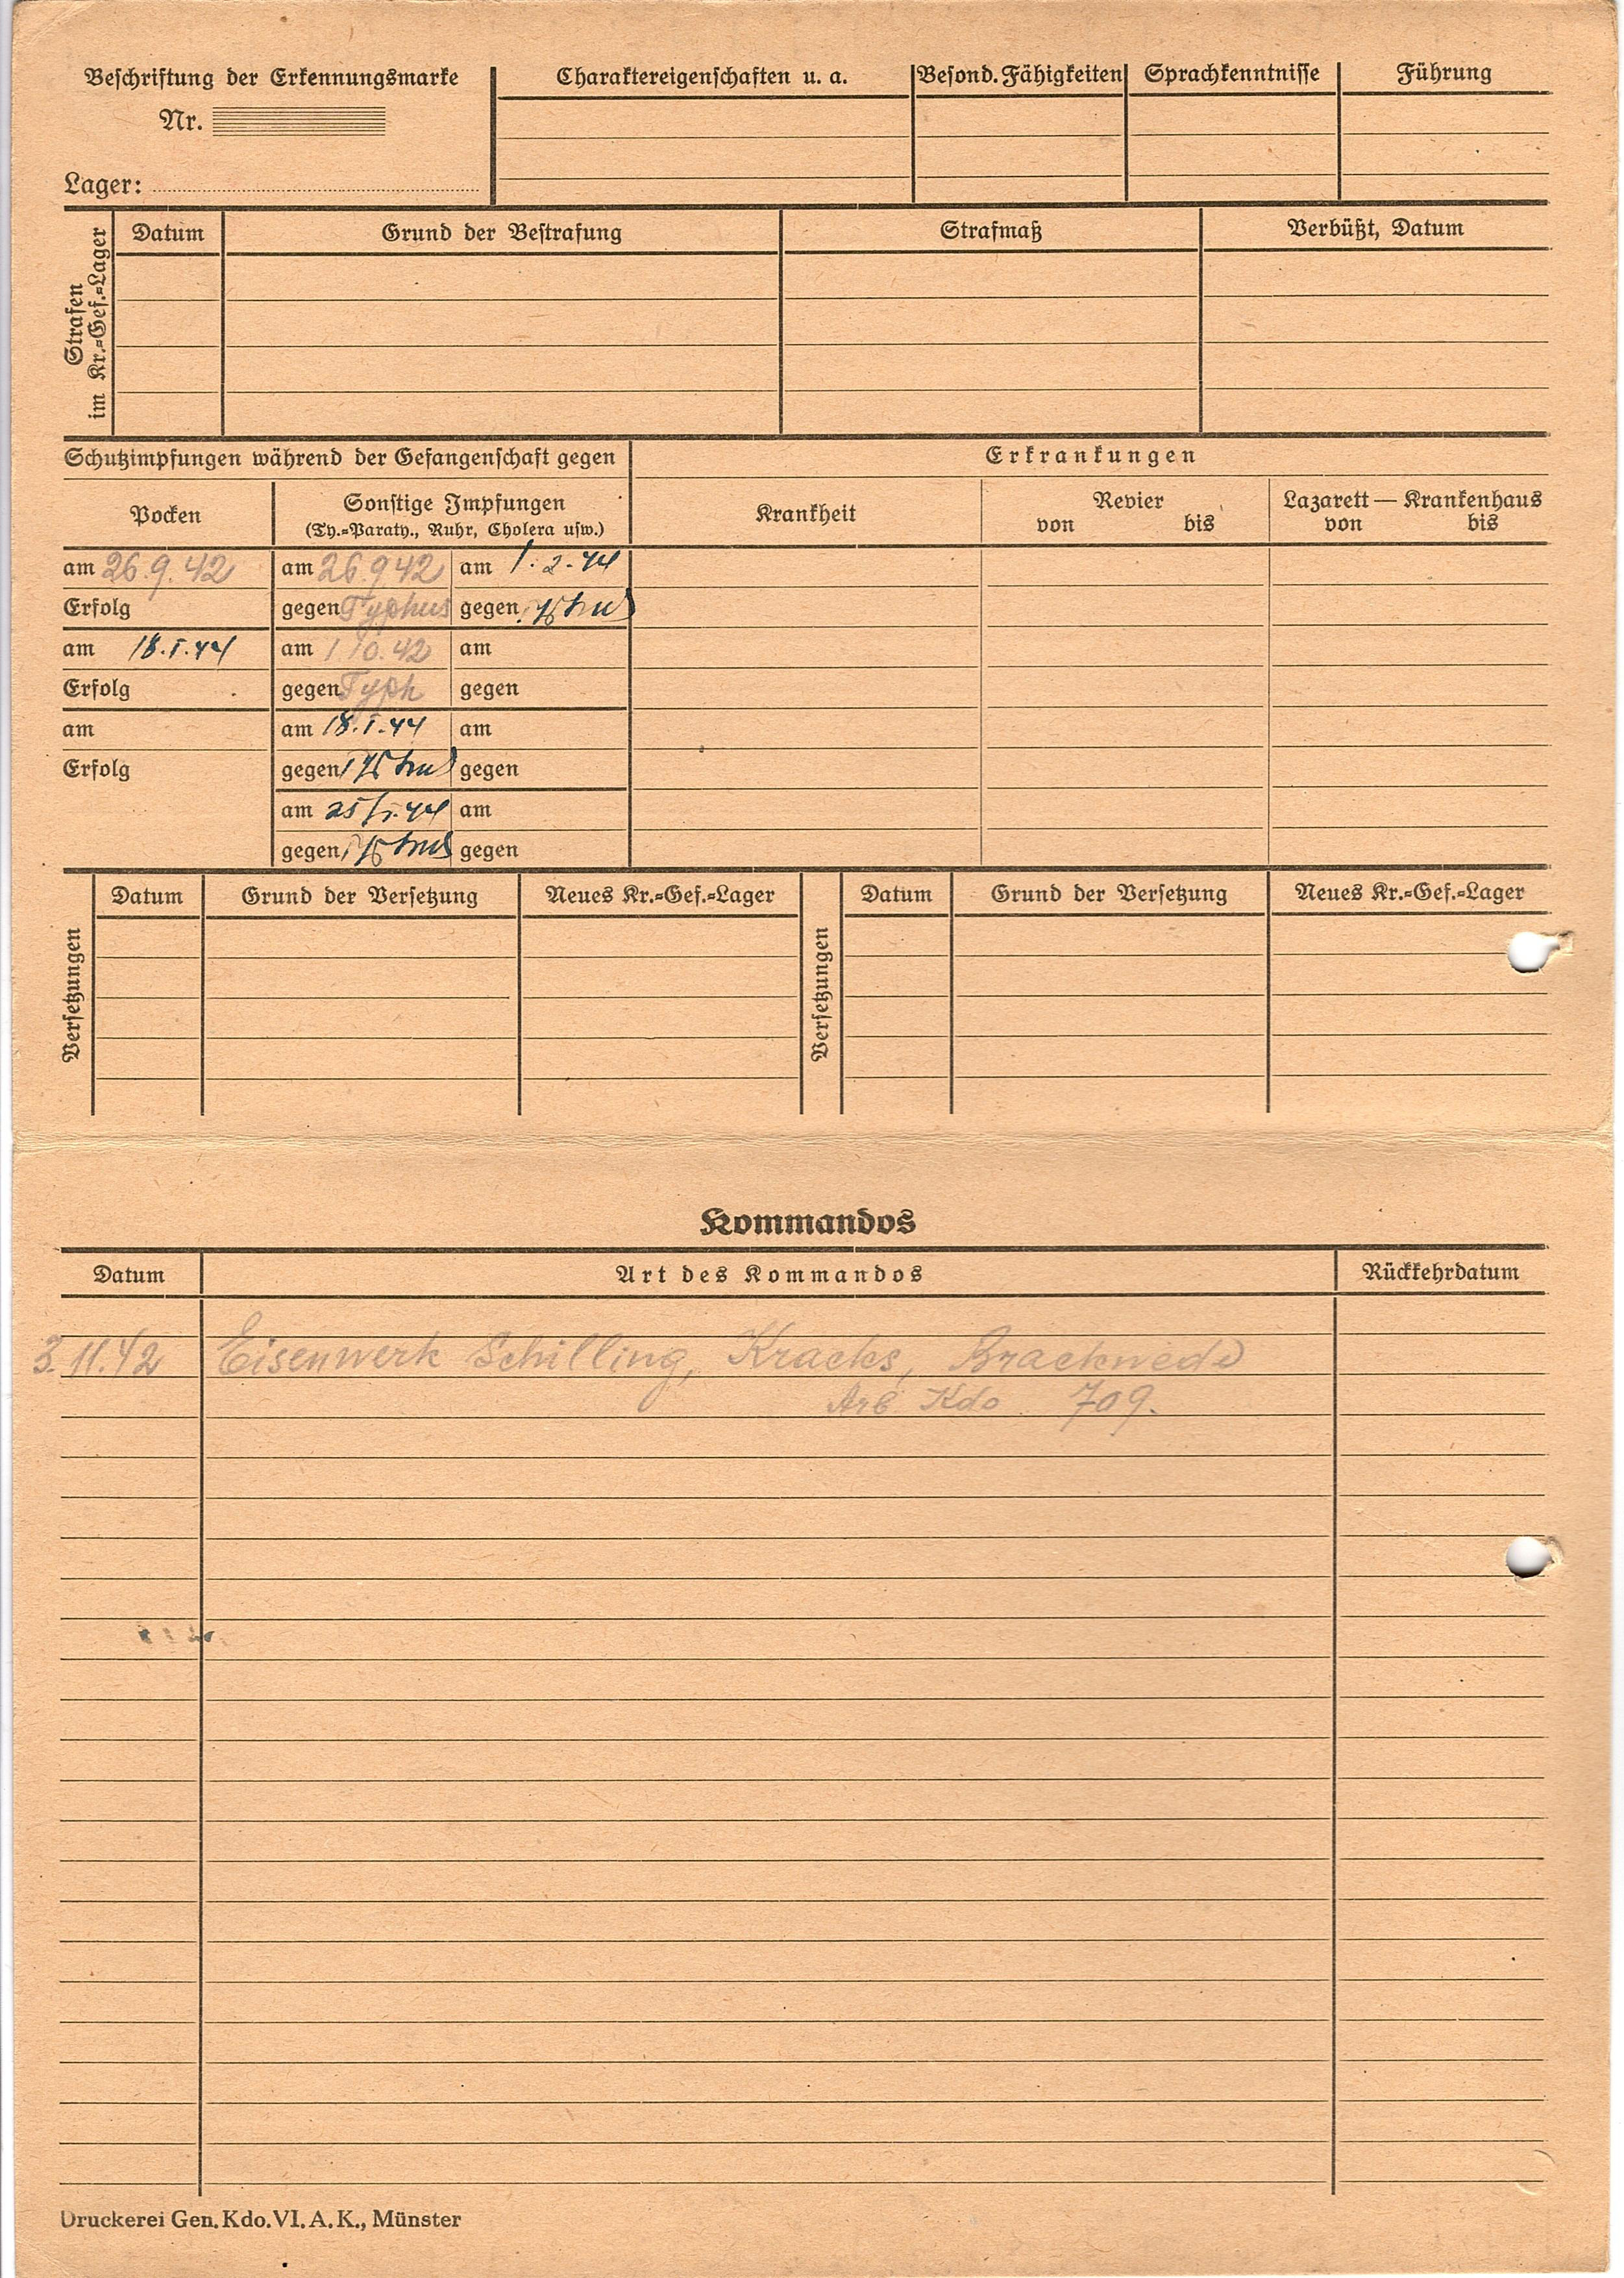 Beschriftung der Erkennungsmarke
Nr.
Lager:
Charaktereigenschaften u. a.
Besond. Fähigkeiten
Sprachkenntnisse
Führung
Strafen
im Kr.=Gef.=Lager
Datum
Grund der Bestrafung
Strafmaß
Verbüßt, Datum
Schutzimpfungen während der Gefangenschaft gegen
Erkrankungen
Pocken
Sonstige Impfungen
(Ty.=Paraty., Ruhr, Cholera usw.)
Krankheit
Revier
von bis
Lazarett — Krankenhaus
von bis
am 26.9.42 am 26.9 42 am 1.2.44
Erfolg gegen Typhus gegen
am 18.I.44 am 1 10.42 am
Erfolg gegen Typh gegen
am am 18.I.44 am
Erfolg gegen gegen
am 25/I.44 am
gegen gegen
Versetzungen
Datum
Grund der Versetzung
Neues Kr.=Gef.=Lager
Versetzungen
Datum
Grund der Versetzung
Neues Kr.=Gef.=Lager
Kommandos
Datum Art des Kommandos Rückkehrdatum
3.11.42 Eisenwerk Schilling, Kracks, Brackwede
Arb Kdo 709.
Druckerei Gen. Kdo. VI. A. K., Münster